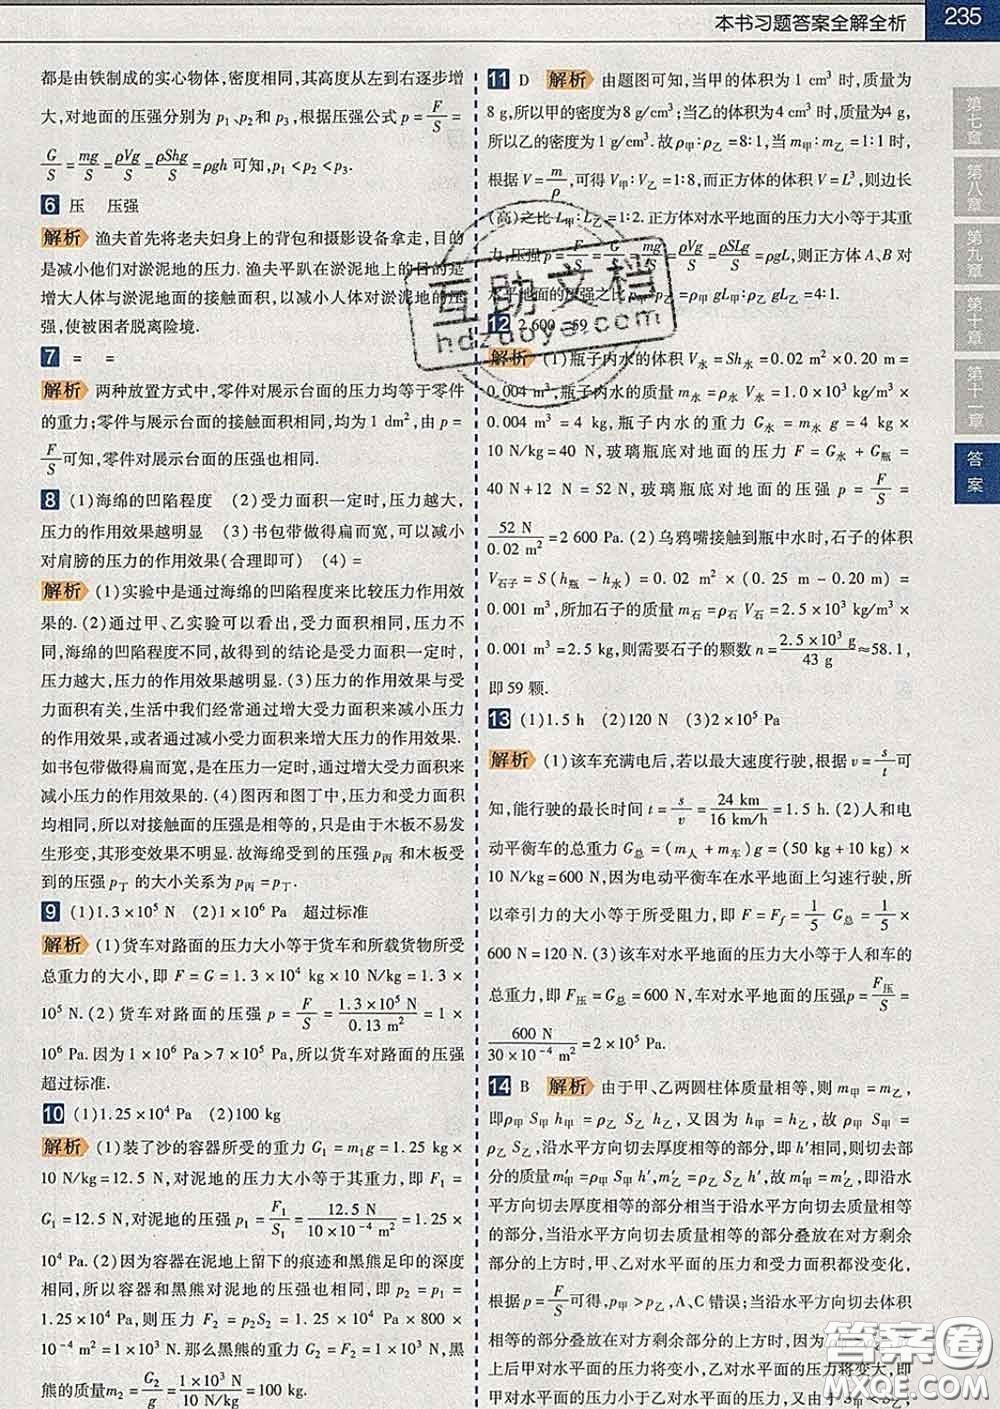 本书习题答案全解全析 235
都是由铁制成的实心物体,密度相同,其高度从左到右逐步增
大,对地面的压强分别为 p₁、p₂ 和 p₃,根据压强公式 p = F/S =
G/S = mg/S = ρVg/S = ρShg/S = ρgh 可知,p₁ < p₂ < p₃.
6 压 压强
解析 渔夫首先将老夫妇身上的背包和摄影设备拿走,目的
是减小他们对淤泥地的压力.渔夫平趴在淤泥地上的目的是
增大人体与淤泥地面的接触面积,以减小人体对淤泥地的压
强,使被困者脱离险境.
7 = =
解析 两种放置方式中,零件对展示台面的压力均等于零件
的重力;零件与展示台面的接触面积相同,均为 1 dm²,由 p =
F/S 可知,零件对展示台面的压强也相同.
8 (1)海绵的凹陷程度 (2)受力面积一定时,压力越大,
压力的作用效果越明显 (3)书包带做得扁而宽,可以减小
对肩膀的压力的作用效果(合理即可) (4)=
解析 (1)实验中是通过海绵的凹陷程度来比较压力作用效
果的.(2)通过甲、乙实验可以看出,受力面积相同,压力不
同,海绵的凹陷程度不同,故得到的结论是受力面积一定时,
压力越大,压力的作用效果越明显.(3)压力的作用效果与受
力面积有关,生活中我们经常通过增大受力面积来减小压力
的作用效果,或者通过减小受力面积来增大压力的作用效果.
如书包带做得扁而宽,是在压力一定时,通过增大受力面积来
减小压力的作用效果的.(4)图丙和图丁中,压力和受力面积
均相同,所以对接触面的压强是相等的,只是由于木板不易发
生形变,其形变效果不明显.故海绵受到的压强 p丙 和木板受
到的压强 p丁 的大小关系为 p丙 = p丁.
9 (1)1.3×10⁵ N (2)1×10⁶ Pa 超过标准
解析 (1)货车对路面的压力大小等于货车和所载货物所受
总重力的大小,即 F = G = 1.3 × 10⁴ kg × 10 N/kg = 1.3 ×
10⁵ N.(2)货车对路面的压强 p = F/S = 1.3×10⁵ N/0.13 m² = 1 ×
10⁶ Pa.因为 1×10⁶ Pa > 7×10⁵ Pa,所以货车对路面的压强
超过标准.
10 (1)1.25×10⁴ Pa (2)100 kg
解析 (1)装了沙的容器所受的重力 G₁ = m₁g = 1.25 kg ×
10 N/kg = 12.5 N,对泥地的压力大小等于其重力,即 F₁ =
G₁ = 12.5 N,对泥地的压强 p₁ = F₁/S₁ = 12.5 N/10×10⁻⁴ m² = 1.25 ×
10⁴ Pa.(2)因为容器在泥地上留下的痕迹和黑熊足印的深度
相同,所以容器和黑熊对泥地的压强相同,即 p₂ = p₁ =
1.25 × 10⁴ Pa.黑熊对地面的压力 F₂ = p₂S₂ = 1.25 × 10⁴ Pa × 800 ×
10⁻⁴ m² = 1 × 10³ N.那么黑熊的重力 G₂ = F₂ = 1 × 10³ N,黑
熊的质量 m₂ = G₂/g = 1×10³ N/10 N/kg = 100 kg.
11 D 解析 由题图可知,当甲的体积为 1 cm³ 时,质量为
8 g,所以甲的密度为 8 g/cm³;当乙的体积为 4 cm³ 时,质量为 4 g,
所以乙的密度为 1 g/cm³.故 ρ甲:ρ乙 = 8:1,当 m甲:m乙 = 1:1 时,
根据 V = m/ρ,可得 V甲:V乙 = 1:8,而正方体的体积 V = L³,则边长
(高)之比 L甲:L乙 = 1:2.正方体对水平地面的压力大小等于其重
力,压强 p = F/S = G/S = mg/S = ρVg/S = ρSLg/S = ρgL,则正方体 A、B 对
水平地面的压强之比 ρ甲 gL甲:ρ乙 gL乙 = 4:1.
12 2 600 59
解析 (1)瓶子内水的体积 V水 = Sh水 = 0.02 m² × 0.20 m =
0.004 m³,瓶子内水的质量 m水 = ρ水 V水 = 1.0 × 10³ kg/m³ ×
0.004 m³ = 4 kg,瓶子内水的重力 G水 = m水 g = 4 kg ×
10 N/kg = 40 N,玻璃瓶底对地面的压力 F = G水 + G瓶 =
40 N + 12 N = 52 N,玻璃瓶底对地面的压强 p = F/S =
52 N/0.02 m² = 2 600 Pa.(2)乌鸦嘴接触到瓶中水时,石子的体积
V石子 = S(h瓶 − h水) = 0.02 m² × (0.25 m − 0.20 m) =
0.001 m³,所加石子的质量 m石 = ρ石 V石 = 2.5 × 10³ kg/m³ ×
0.001 m³ = 2.5 kg,则需要石子的颗数 n = 2.5×10³ g/43 g ≈ 58.1,
即 59 颗.
13 (1)1.5 h (2)120 N (3)2×10⁵ Pa
解析 (1)该车充满电后,若以最大速度行驶,根据 v = s/t 可
知,能行驶的最长时间 t = s/v = 24 km/16 km/h = 1.5 h.(2)人和电
动平衡车的总重力 G总 = (m人 + m车)g = (50 kg + 10 kg) ×
10 N/kg = 600 N,因为电动平衡车在水平地面上匀速行驶,所
以牵引力的大小等于所受阻力,即 F = Ff = 1/5 G总 = 1/5 ×
600 N = 120 N.(3)该车对水平地面的压力大小等于人和车的
总重力,即 F压 = G总 = 600 N,车对水平地面的压强 p = F压/S =
600 N/30×10⁻⁴ m² = 2×10⁵ Pa.
14 B 解析 由于甲、乙两圆柱体质量相等,则 m甲 = m乙,
即 ρ甲 S甲 h甲 = ρ乙 S乙 h乙,又因为 h甲 = h乙,故 ρ甲 S甲 =
ρ乙 S乙,沿水平方向切去厚度相等的部分,即 h′相等,则切去部
分的质量 m′甲 = m′乙 = ρ乙 S乙 h′,故 m′甲 = m′乙,所以,即沿水
平方向切去厚度相等的部分相当于沿水平方向切去质量相等
的部分,当沿水平方向切去质量相等的部分叠放在对方剩余
部分上方时,甲、乙对水平面的压力和受力面积都没变化,
根据 p = F/S 可得,p甲 > p乙,A、C 错误;当沿水平方向切去体积
相等的部分叠放在对方剩余部分的上方时,因
上后甲对水平面的压力将变小,乙对水平面的压力将变大,即
甲对水平面的压力小于乙对水平面的压力,又由于
第七章
第八章
第九章
第十章
第十一章
答案
互助文档
hdzuoye.com
答案圈
MXQE.COM